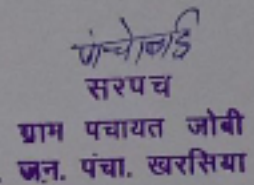 सरपच
ग्राम पचायत जोबी
जन. पंचा. खरसिया